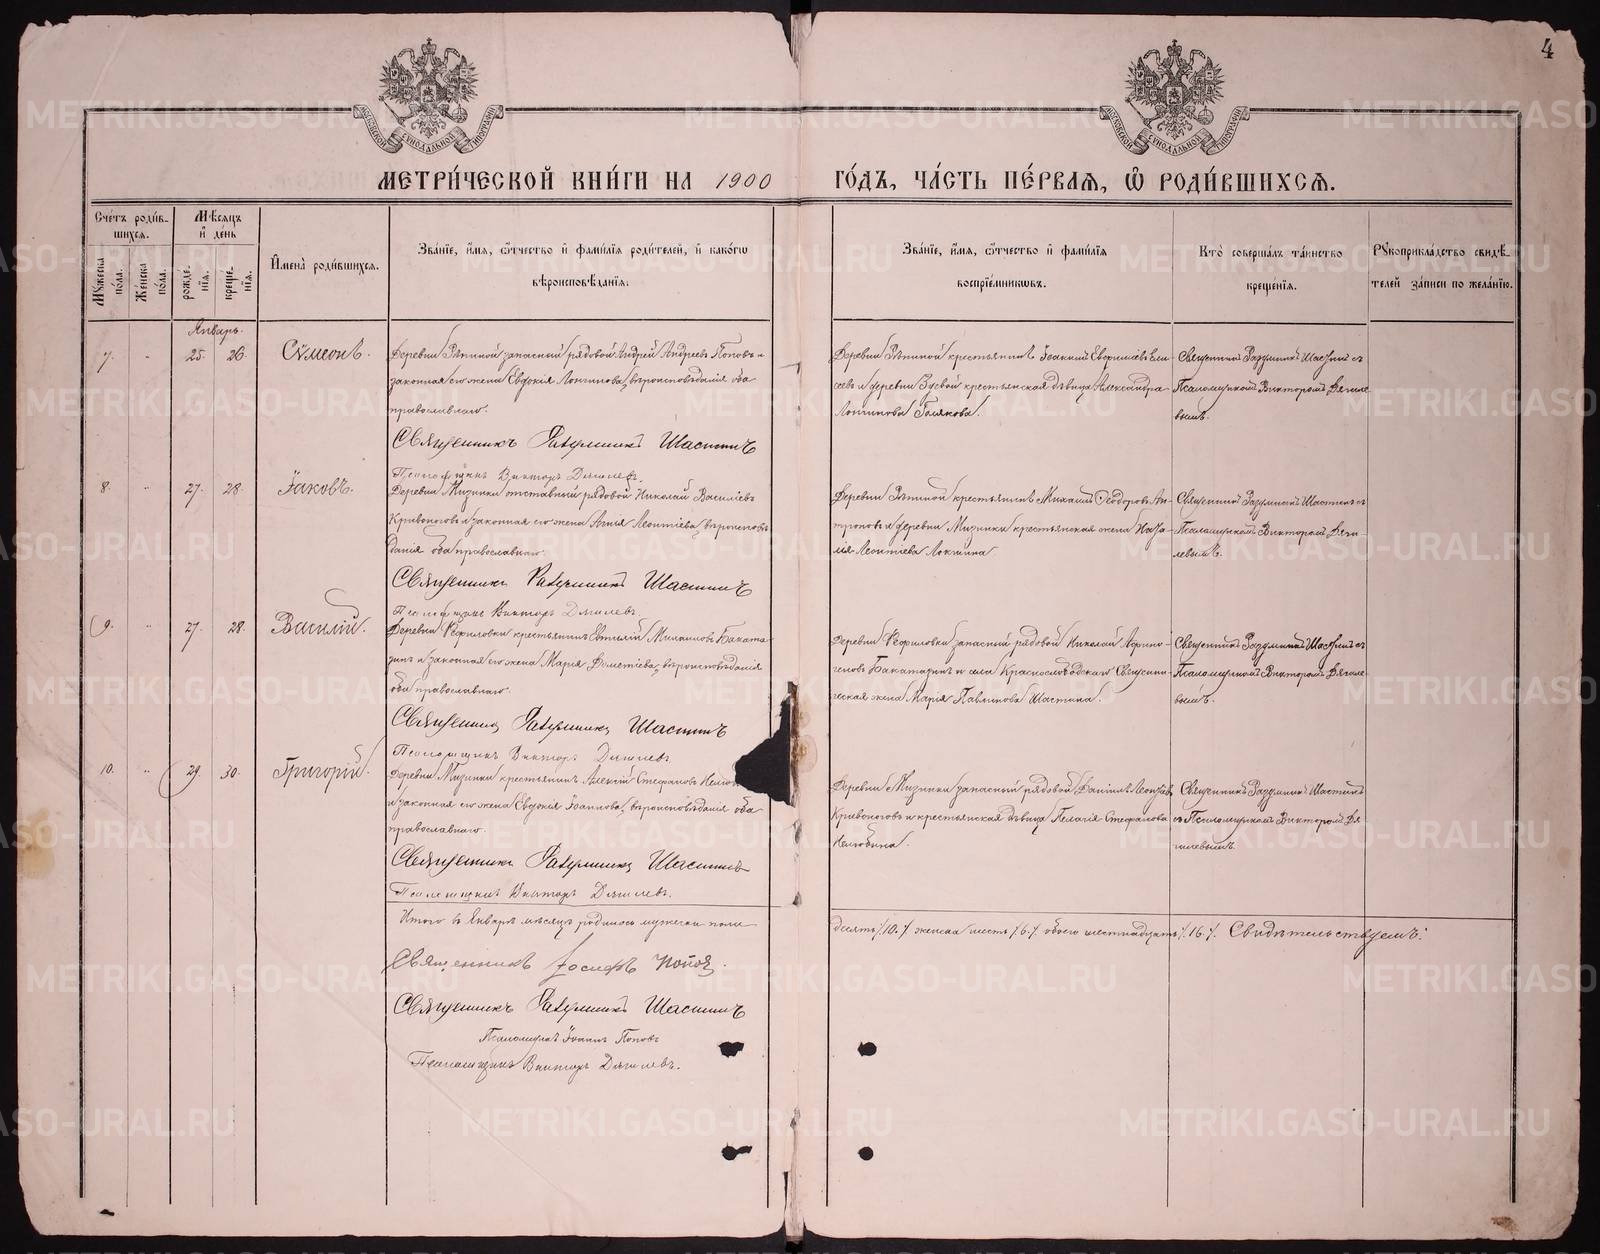 4
МОСКОВСКОЙ СѴНОДАЛЬНОЙ ТИПОГРАФІИ
МОСКОВСКОЙ СѴНОДАЛЬНОЙ ТИПОГРАФІИ
МЕТРИ́ЧЕСКОЙ КНИ́ГИ НА 1900 ГО́ДЪ, ЧА́СТЬ ПЕ́РВАЯ, Ѡ҆ РОДИ́ВШИХСЯ.
Сче́тъ роди́в-
шихся.
Мѣ́сяцъ
и҆ де́нь
Мꙋжеска пола.
Же́нска пола.
рожде́-
нїя.
креще́-
нїя.
И҆мена̀ роди́вшихся.
Зва́нїе, и҆́мя, ѻ҆́тчество и҆ фами́лїя роди́телей, и҆ како́гѡ
вѣроисповѣ́данїя.
Зва́нїе, и҆́мя, ѻ҆́тчество и҆ фами́лїя
воспрїе́мникѡвъ.
Кто̀ соверша́лъ та́инство
креще́нїя.
Рꙋкоприкла́дство свидѣ́-
телей за́писи по жела́нїю.
Январь.
7. " 25. 26. Сѵмеонъ.
Деревни Рѣпиной запасный рядовой Андрей Андреевъ Поповъ и
законная его жена Евдокія Лонгинова, вѣроисповѣданія оба
православнаго.
Священникъ Разумникъ Шастинъ
Псаломщикъ Викторъ Дягилевъ.
Деревни Рѣпиной крестьянинъ Іоаннъ Евфиміевъ Ели-
сѣевъ и деревни Зуевой крестьянская дѣвица Александра
Лонгинова Полякова.
Священникъ Разумникъ Шастинъ съ
Псаломщикомъ Викторомъ Дягиле-
вымъ.
8. " 27. 28. Іаковъ.
Деревни Мизинки отставный рядовой Николай Васильевъ
Кривоноговъ и законная его жена Анна Леонтіева, вѣроисповѣ-
данія оба православнаго.
Священникъ Разумникъ Шастинъ
Псаломщикъ Викторъ Дягилевъ.
Деревни Рѣпиной крестьянинъ Михаилъ Ѳеодоровъ Ан-
троповъ и деревни Мизинки крестьянская жена Ната-
лья Леонтіева
Священникъ Разумникъ Шастинъ съ
Псаломщикомъ Викторомъ Дяги-
левымъ.
9. " 27. 28. Василій.
Деревни крестьянинъ Михаиловъ
и законная его жена Марія вѣроисповѣданія
оба православнаго.
Священникъ Разумникъ Шастинъ
Псаломщикъ Викторъ Дягилевъ
Деревни запасный рядовой Николай
и села Краснослободскаго Священни-
ческая жена Марія Павлинова Шастина.
Священникъ Разумникъ Шастинъ съ
Псаломщикомъ Викторомъ Дягиле-
вымъ.
10. " 29. 30. Григорій.
Деревни Мизинки крестьянинъ Алексій Стефановъ
и законная его жена Евдокія Іоаннова, вѣроисповѣданія оба
православнаго.
Священникъ Разумникъ Шастинъ
Псаломщикъ Викторъ Дягилевъ.
Деревни Мизинки запасный рядовой Даніилъ Леонтіевъ
Кривоноговъ и крестьянская дѣвица Пелагія Стефанова
Нелюбина.
Священникъ Разумникъ Шастинъ
съ Псаломщикомъ Викторомъ Дя-
гилевымъ.
Итого въ Январѣ мѣсяцѣ родилось мужеска пола
десять /10./ женска шесть /6./ обоего шестнадцать /16./. Свидѣтельствуемъ:
Священникъ Іосифъ Поповъ.
Священникъ Разумникъ Шастинъ
Псаломщикъ Іоаннъ Поповъ
Псаломщикъ Викторъ Дягилевъ.
METRIKI.GASO-URAL.RU